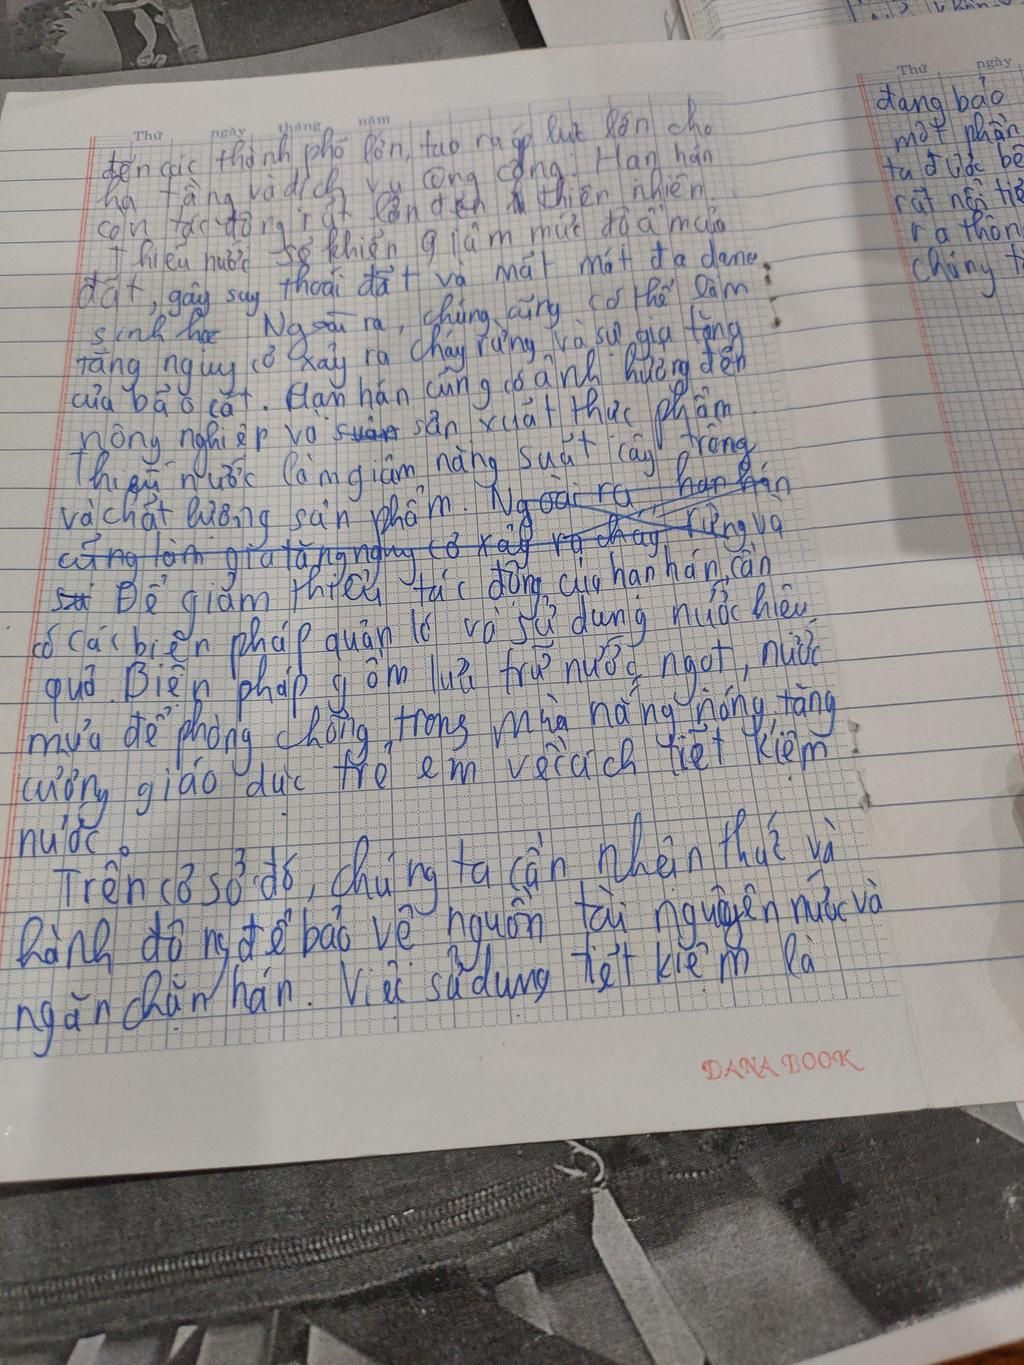 Thứ ngày tháng năm
đến các thành phố lớn, tạo ra áp lực lớn cho
hạ tầng và dịch vụ công cộng. Hạn hán
còn tác động rất lớn đến thiên nhiên.
Thiếu nước sẽ khiến giảm mức độ ẩm của
đất, gây suy thoái đất và mất mát đa dạng
sinh học Ngoài ra, chúng cũng có thể làm
tăng nguy cơ xảy ra cháy rừng và sự gia tăng
của bão cát. Hạn hán cũng có ảnh hưởng đến
nông nghiệp và sản xuất thực phẩm.
Thiếu nước làm giảm năng suất cây trồng
và chất lượng sản phẩm. Ngoài ra hạn hán
cũng làm gia tăng nguy cơ xảy ra cháy rừng và
sự Để giảm thiểu tác động của hạn hán, cần
có các biện pháp quản lí và sử dụng nước hiệu
quả. Biện pháp gồm lưu trữ nước ngọt, nước
mưa để phòng chống trong mùa nắng nóng, tăng
cường giáo dục trẻ em về cách tiết kiệm
nước.
Trên cơ sở đó, chúng ta cần nhận thức và
hành động để bảo vệ nguồn tài nguyên nước và
ngăn chặn hán. Việc sử dụng tiết kiệm là
DANA BOOK
Thứ ngày
đang bảo
một phần
ta được
rất nên
ra
chúng